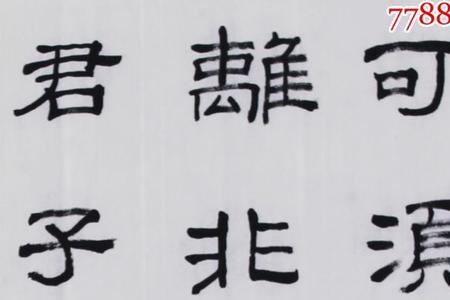 7788
可湏
離非
君子